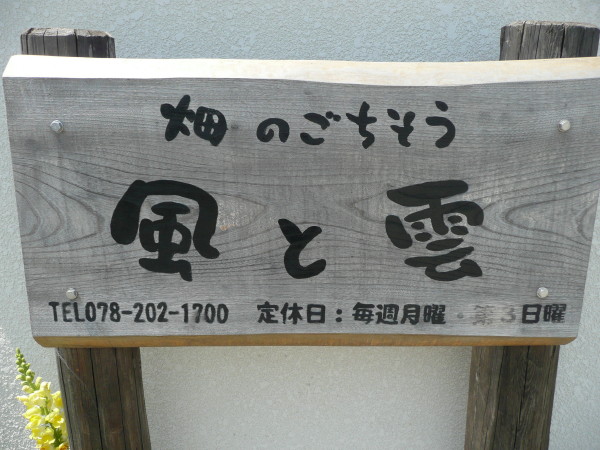 畑のごちそう
風と雲
TEL078-202-1700 定休日：毎週月曜・第3日曜